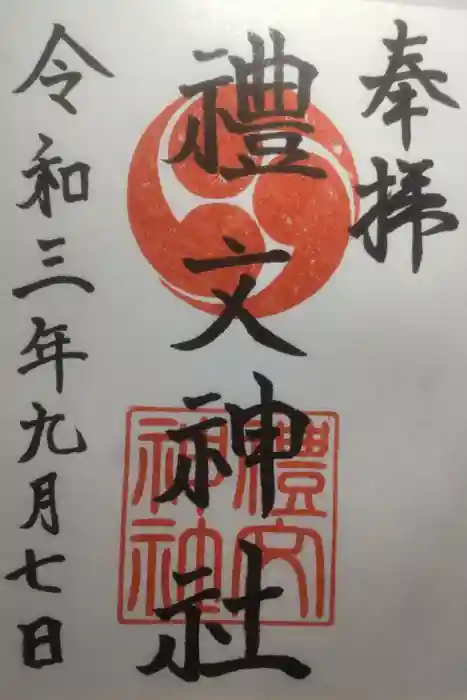 奉拝
禮文神社
禮文神社
令和三年九月七日